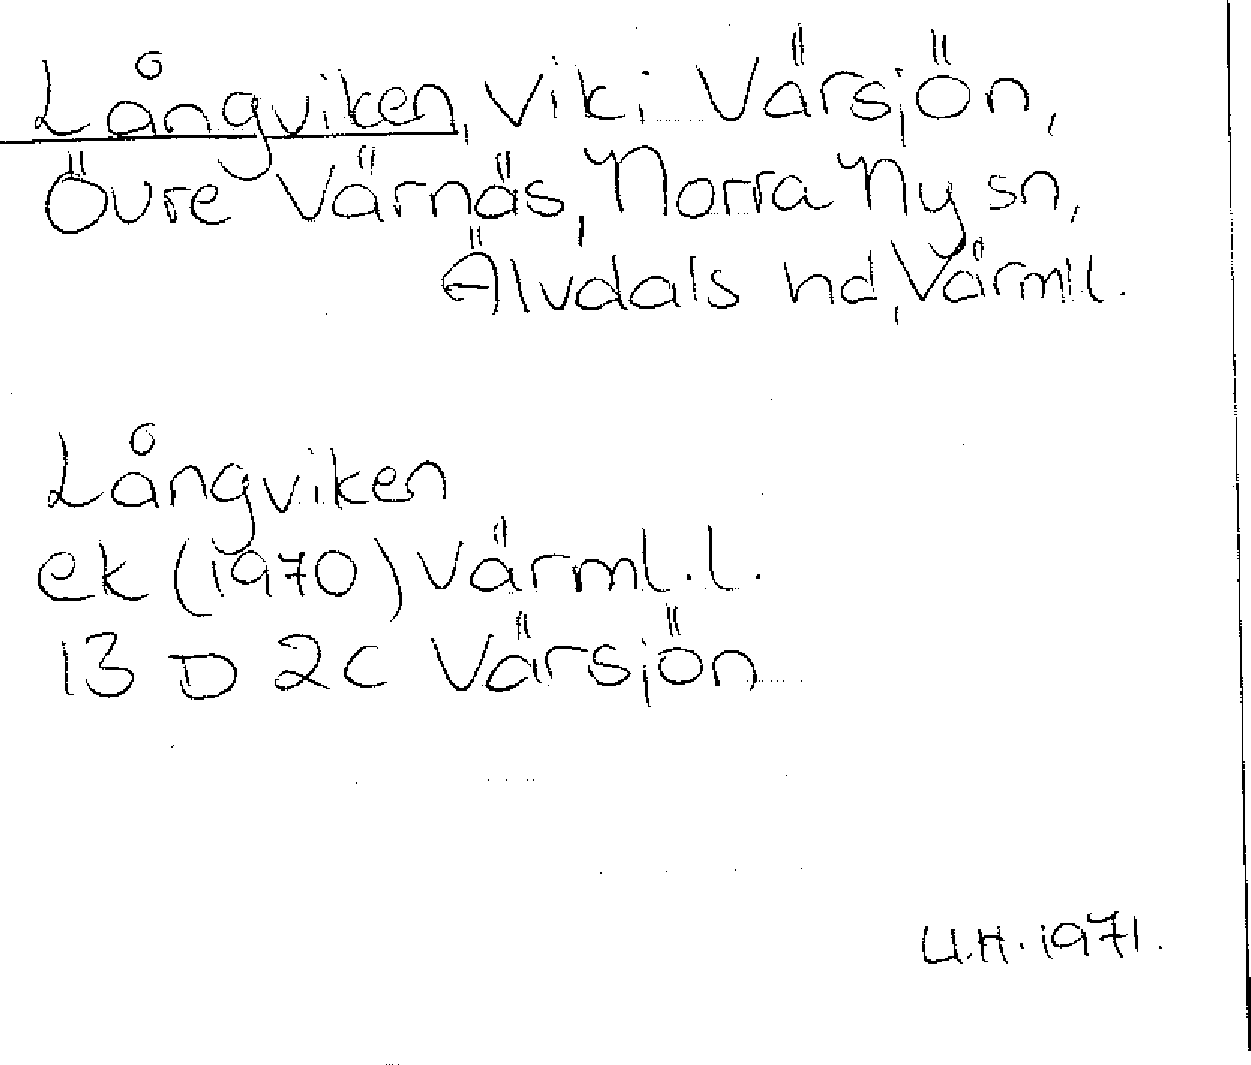 Långviken, vik i Värsjön,
Övre Värnäs, Norra Ny sn,
Älvdals hd, Värml.
Långviken
ek (1970) Värml.l.
13 D 2c Värsjön
U.H. 1971.